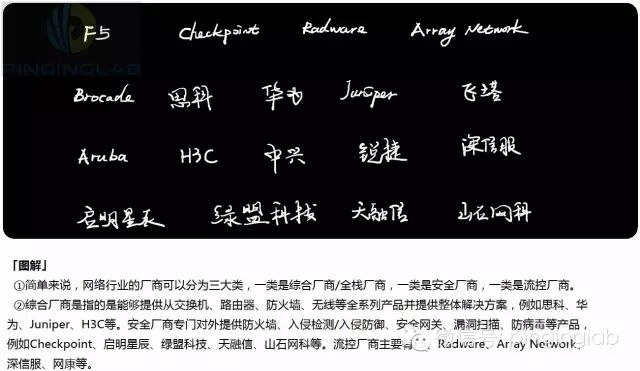 F5 Checkpoint Radware Array Network
PINGINGLAB
Brocade 思科 华为 Juniper 飞塔
Aruba H3C 中兴 锐捷 深信服
启明星辰 绿盟科技 天融信 山石网科
「图解」
①简单来说，网络行业的厂商可以分为三大类，一类是综合厂商/全栈厂商，一类是安全厂商，一类是流控厂商。
②综合厂商是指的是能够提供从交换机、路由器、防火墙、无线等全系列产品并提供整体解决方案，例如思科、华
为、Juniper、H3C等。安全厂商专门对外提供防火墙、入侵检测/入侵防御、安全网关、漏洞扫描、防病毒等产品，
例如Checkpoint、启明星辰、绿盟科技、天融信、山石网科等。流控厂商主要有 Radware、Array Network、
深信服、网康等。
微信号: pinginglab